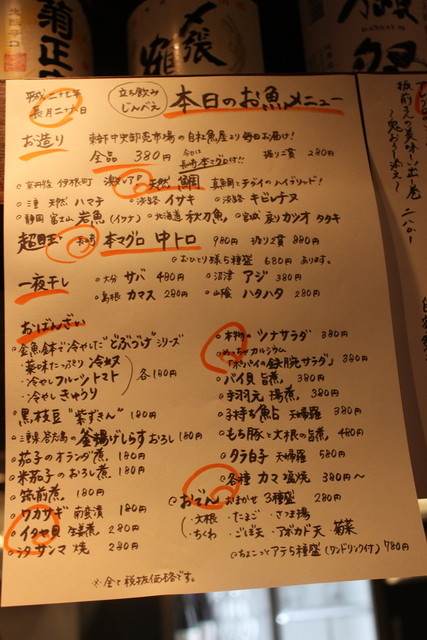 菊正
〆張
鶴
平成二十七年
長月二十六日
立ち飲み
じんべえ
本日のお魚メニュー
お造り
東京中央卸売市場の自社魚屋より毎日お届け!
全品 380円
握り二貫 280円
○京丹後 伊根町 激レア! 天然 鯛 真鯛とチダイのハイブリッド!
○三重 天然 ハマチ ○淡路 イサキ ○淡路 キビレチヌ
○静岡 富士山 岩魚(イワナ) ○北海道 秋刀魚 ○宮城 戻りカツオ タタキ
超目玉 長崎 本マグロ 中トロ 980円 握り二貫 880円
○おひとり様5種盛 680円 あります。
一夜干し
○大分 サバ 480円 ○沼津 アジ 380円
○島根 カマス 280円 ○山陰 ハタハタ 280円
おばんざい
○金魚鉢で冷やした"どぶづけ"シリーズ
・薬味たっぷり 冷奴
・冷やしフルーツトマト
・冷やしきゅうり
各180円
○黒枝豆"紫ずきん" 180円
○三重県答志島の釜揚げしらすおろし 180円
○茄子のオランダ煮 180円
○米茄子のおろし煮 180円
○筑前煮 180円
○ワカサギ 南蛮漬 180円
○イタヤ貝 生姜煮 280円
○汐サンマ 焼 280円
○本物のツナサラダ 380円
○めっちゃカルシウム
「ポパイの鉄腕サラダ」 380円
○バイ貝 旨煮 380円
○手羽元 揚煮 380円
○子持ち鮎 天婦羅 380円
○もち豚と大根の旨煮 480円
○タラ白子 天婦羅 580円
○各種 カマ塩焼 380円〜
○おでん おまかせ 3種盛 280円
・大根 ・たまご ・さつま揚
・ちくわ ・ごぼ天 ・アボカド天 菊菜
○ちょこっとアテ5種盛(ワンドリンク付) 780円
※全て税抜価格です。